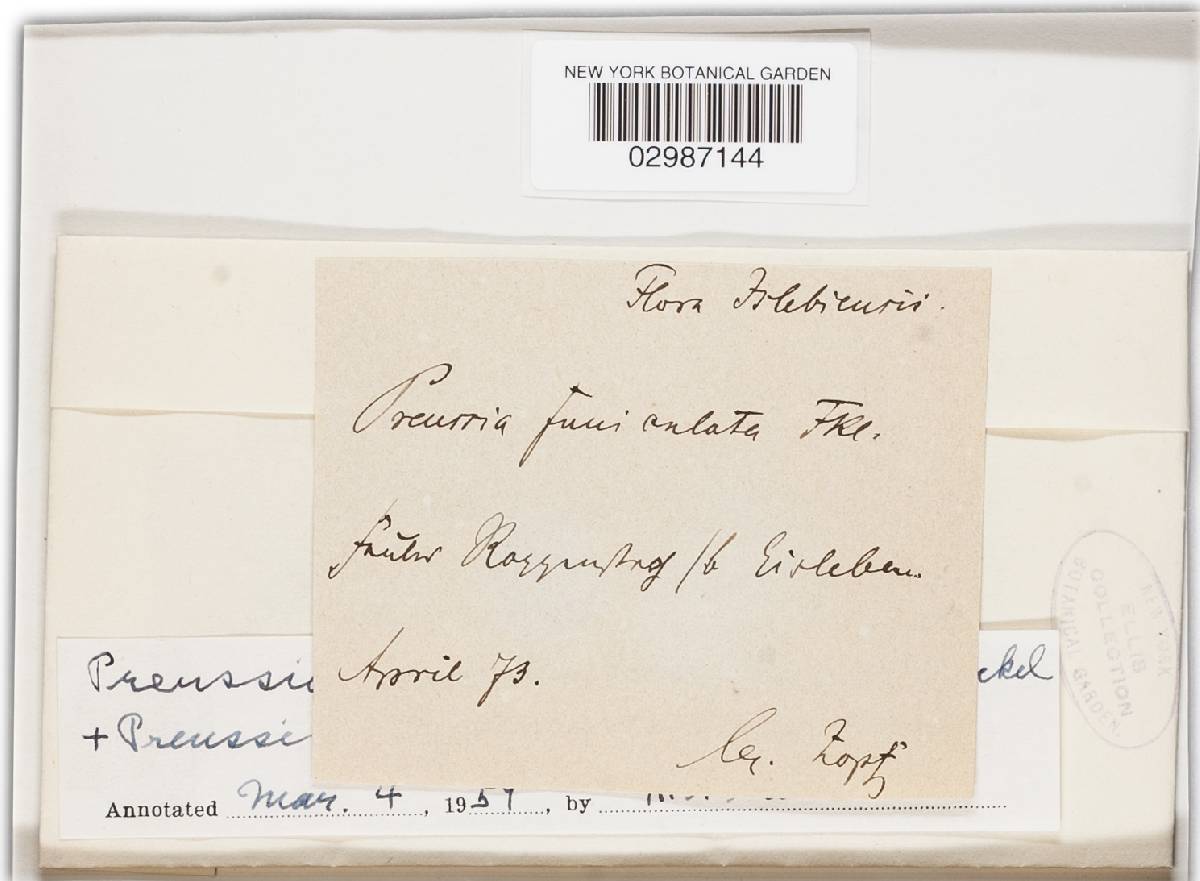 NEW YORK BOTANICAL GARDEN
02987144
Flora Islebiensis.
Preussia funiculata Fkl.
Roggenstroh /b Eisleben.
April 73.
Zopf
Preussi
ckel
+ Preussi
Annotated Mar. 4, 1957, by
NEW YORK
BOTANICAL GARDEN.
ELLIS
COLLECTION